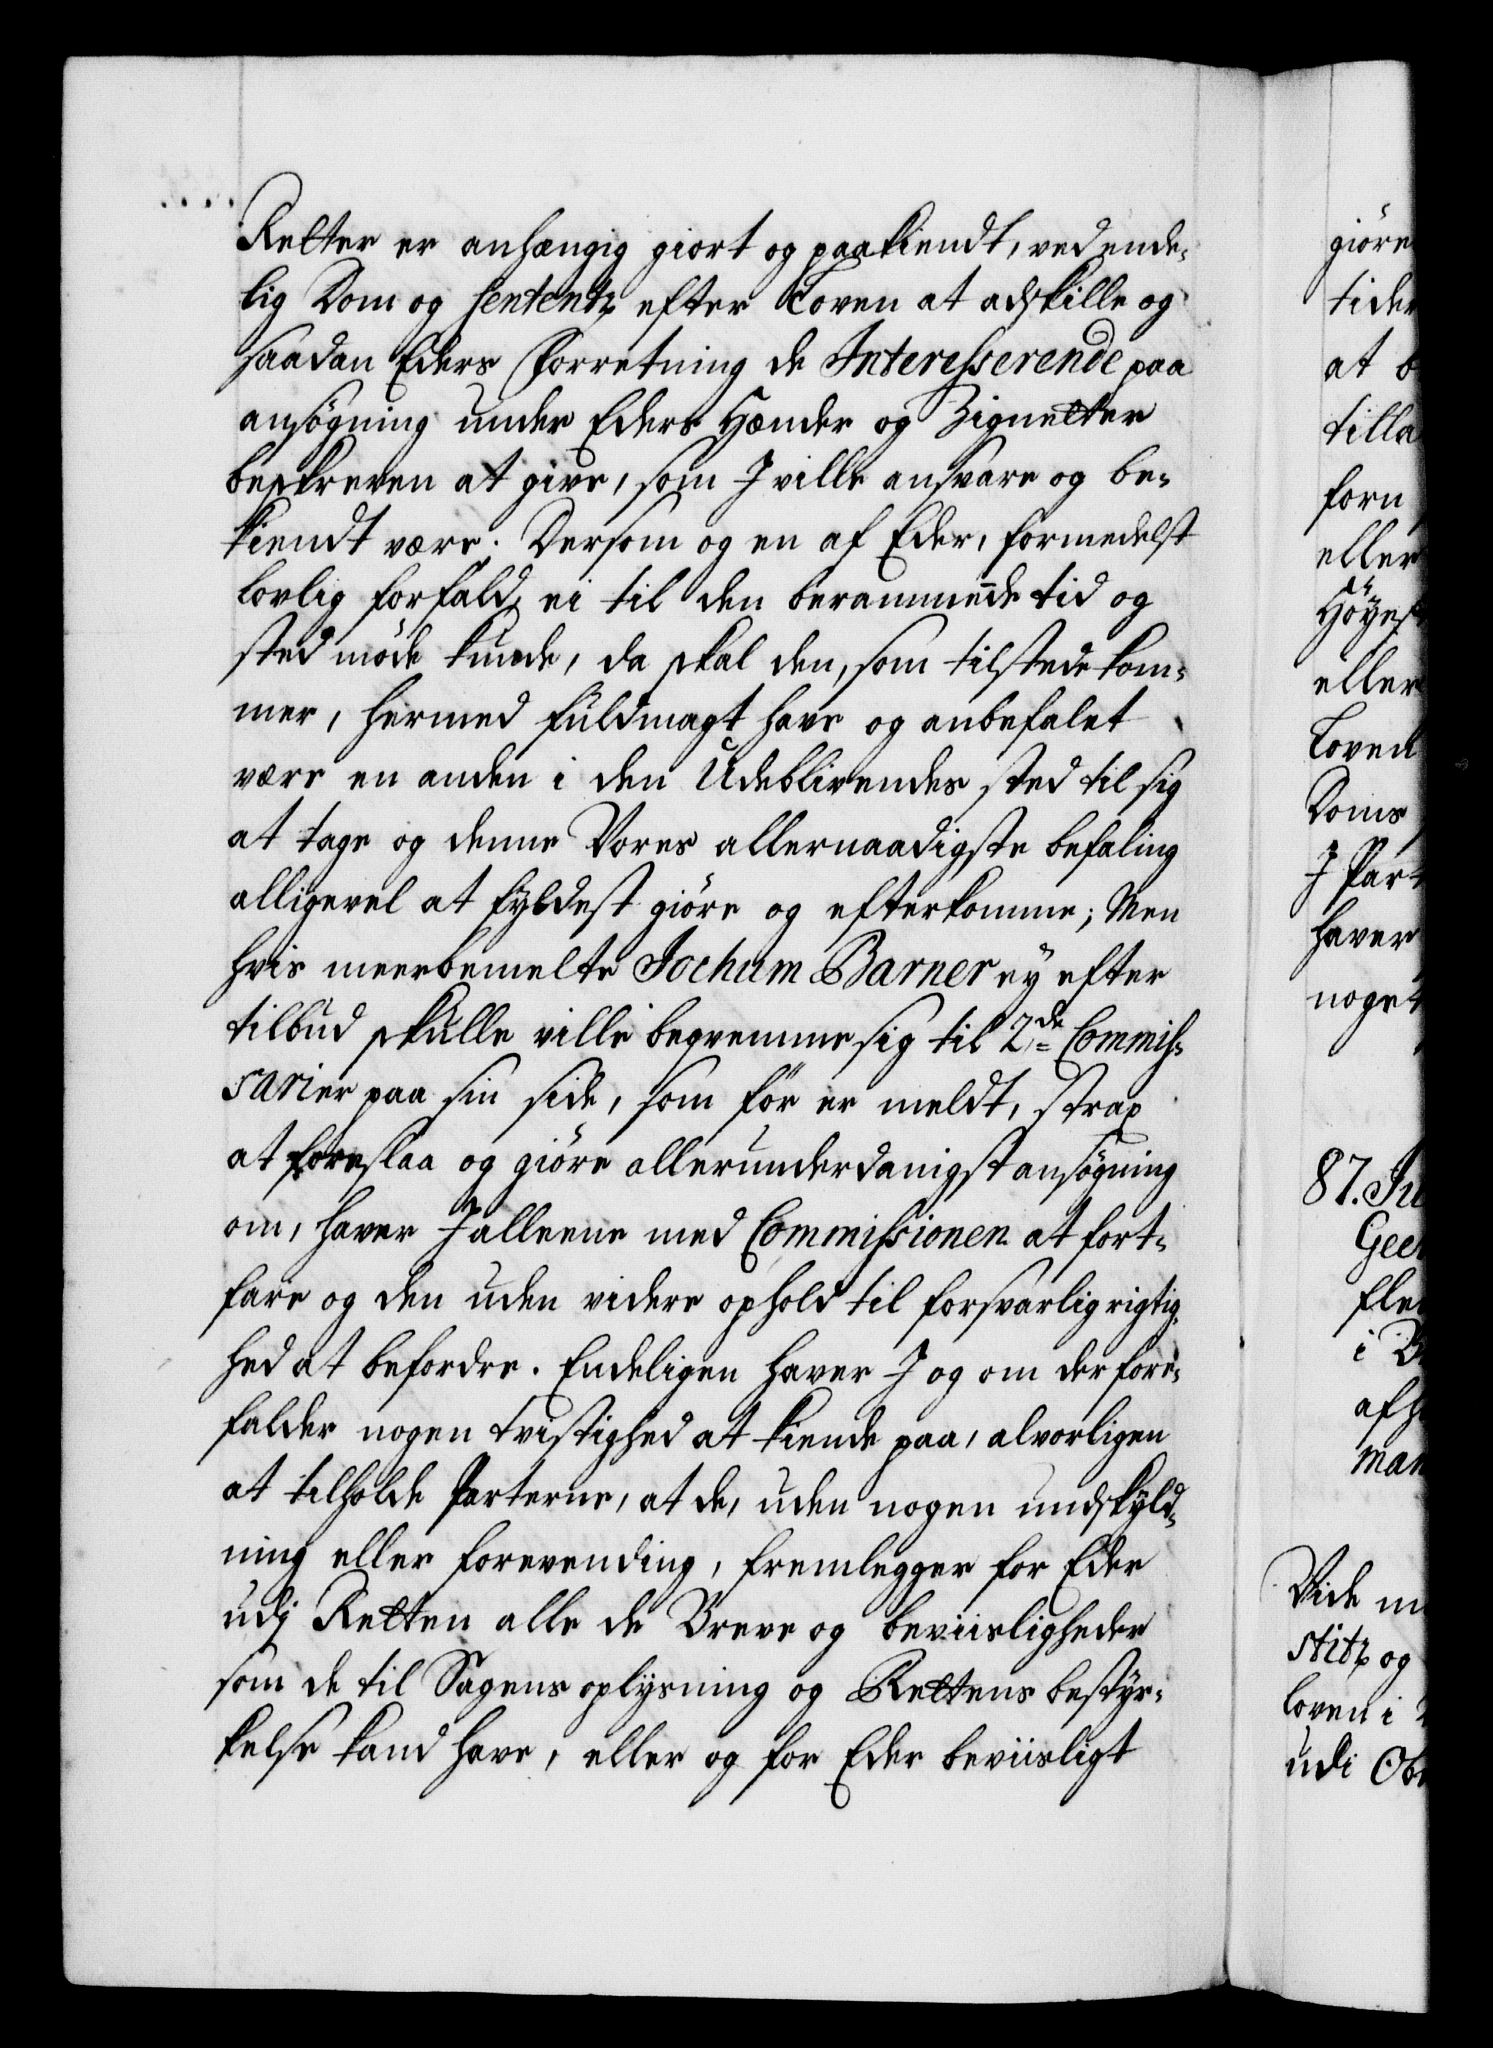 Retter er anhængig giort og paakiendt, ved ende-
lig Dom og Sententz efter Loven at adskille og
saadan Eders Forretning de Interesserende paa
ansøgning under Eders Hænder og Zignetter
beskreven at give, som I ville ansvare og be-
kiendt være. Dersom og en af Eder, formedelst
lovlig forfald, ei til den berammede tid og
sted møde kunde, da skal den, som tilstede kom-
mer, hermed fuldmagt have og anbefalet
være en anden i den Udeblivendes sted til sig
at tage og denne Vores allernaadigste befaling
alligevel at fyldest giöre og efterkomme; Men
hvis meerbemelte Jochum Barner ey efter
tilbud skulle ville beqvemme sig til 2de Commis-
sarier paa sin side, som för er meldt, strax
at foreslaa og giöre allerunderdanigst ansøgning
om, haver I alleene med Commissionen at fort-
fare og den uden videre ophold til forsvarlig rigtig-
hed at befordre. Endeligen haver I og om der fore-
falder nogen tvistighed at kiende paa, alvorligen
at tilholde Parterne, at de, uden nogen undskyld-
ning eller forevending, fremlegger for Eder
udj Retten alle de Breve og beviisligheder
som de til Sagens oplysning og Rettens bestyr-
kelse kand have, eller og for Eder beviisligt
giöre
tider
at b
tilla
forn
eller
Höyest
eller
Loven
Doms
I Part
haver
noget
87. Ju
Geer
fler
i B
afh
man
Vide m
stitz og
loven i
udi Ob